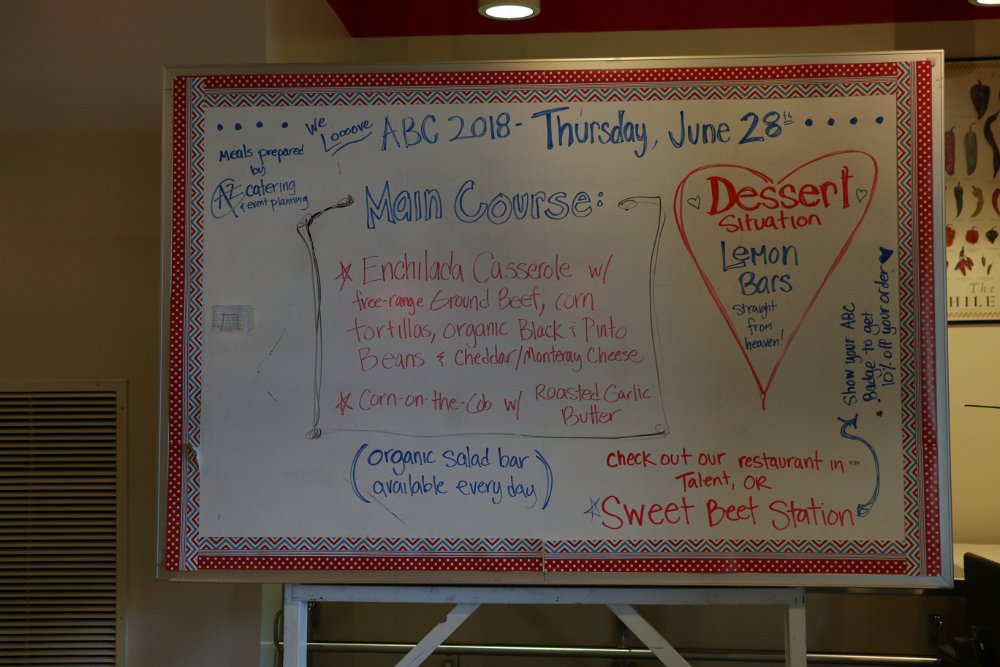 We
Looove
ABC 2018 - Thursday, June 28th
Meals prepared
by
AZ catering
& event planning
Main Course:
Enchilada Casserole w/
free-range Ground Beef, corn
tortillas, organic Black & Pinto
Beans & Cheddar/Monteray Cheese
Corn-on-the-Cob w/ Roasted Garlic
Butter
(organic salad bar
available every day)
Dessert
Situation
Lemon
Bars
straight
from
heaven!
Show your ABC
Badge to get
10% off your order
check out our restaurant in
Talent, OR
Sweet Beet Station
The
HILE